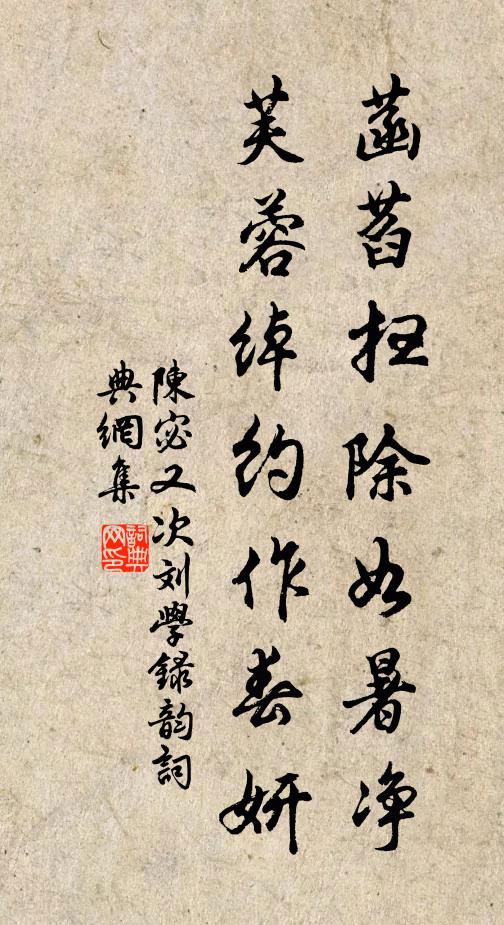 菡萏扫除如暑净
芙蓉绰约作春妍
陳宓又次刘學録韵詞
典網集
詞典
网印